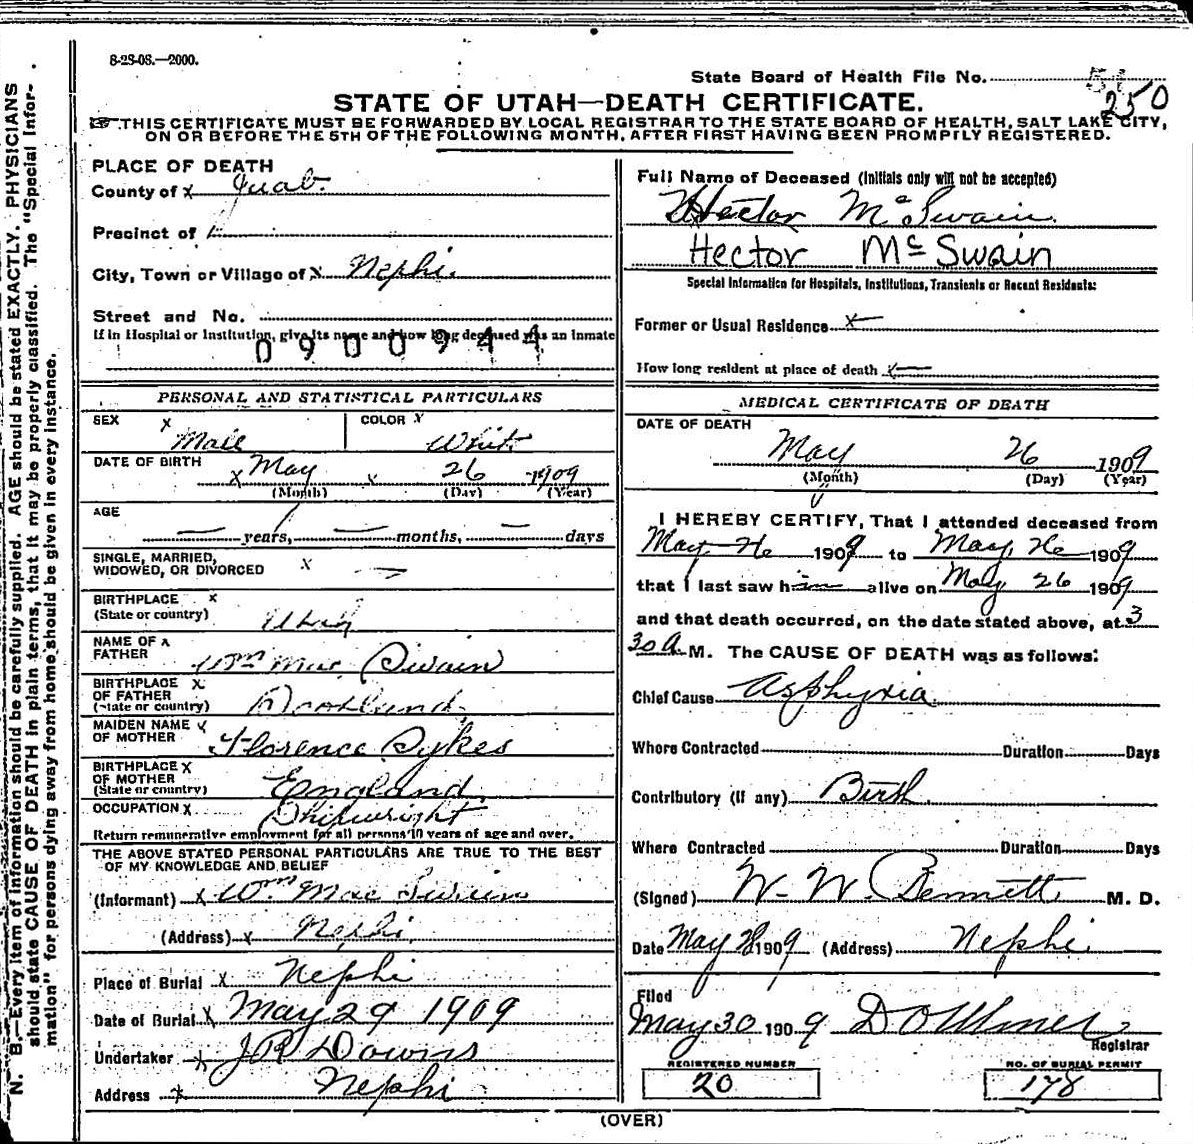 8-28-08.—2000.
State Board of Health File No. 250
STATE OF UTAH—DEATH CERTIFICATE.
THIS CERTIFICATE MUST BE FORWARDED BY LOCAL REGISTRAR TO THE STATE BOARD OF HEALTH, SALT LAKE CITY,
ON OR BEFORE THE 5TH OF THE FOLLOWING MONTH, AFTER FIRST HAVING BEEN PROMPTLY REGISTERED.
N. B.—Every item of information should be carefully supplied. AGE should be stated EXACTLY. PHYSICIANS
should state CAUSE OF DEATH in plain terms, that it may be properly classified. The "Special Infor-
mation" for persons dying away from home should be given in every instance.
PLACE OF DEATH
County of x Juab
Precinct of
City, Town or Village of x Nephi.
Street and No.
If in Hospital or Institution, give its name and how long deceased was an inmate
0900944
PERSONAL AND STATISTICAL PARTICULARS
SEX x Male COLOR x White
DATE OF BIRTH x May x 26 1909
(Month) (Day) (Year)
AGE — years, — months, — days
SINGLE, MARRIED,
WIDOWED, OR DIVORCED x —
BIRTHPLACE x
(State or country) Utah
NAME OF x
FATHER Wm Mac Swain
BIRTHPLACE x
OF FATHER
(State or country) Scotland.
MAIDEN NAME x
OF MOTHER Florence Sykes
BIRTHPLACE x
OF MOTHER
(State or country) England
OCCUPATION x Shipwright
Return remunerative employment for all persons 10 years of age and over.
THE ABOVE STATED PERSONAL PARTICULARS ARE TRUE TO THE BEST
OF MY KNOWLEDGE AND BELIEF
(Informant) x Wm Mac Swain
(Address) x Nephi.
Place of Burial x Nephi
Date of Burial x May 29 1909
Undertaker x J R Downs
Address x Nephi
Full Name of Deceased (Initials only will not be accepted)
Hector McSwain.
Hector McSwain
Special Information for Hospitals, Institutions, Transients or Recent Residents:
Former or Usual Residence x —
How long resident at place of death x —
MEDICAL CERTIFICATE OF DEATH
DATE OF DEATH
May 26 1909
(Month) (Day) (Year)
I HEREBY CERTIFY, That I attended deceased from
May 26 1909 to May, 26 1909
that I last saw him alive on May 26 1909
and that death occurred, on the date stated above, at 3
30 A. M. The CAUSE OF DEATH was as follows:
Chief Cause Asphyxia.
Where Contracted Duration Days
Contributory (if any) Birth.
Where Contracted Duration Days
(Signed) W. W. Bennett M. D.
Date May 28 1909 (Address) Nephi.
Filed
May 30 1909
Registrar
REGISTERED NUMBER
20
NO. OF BURIAL PERMIT
178
(OVER)